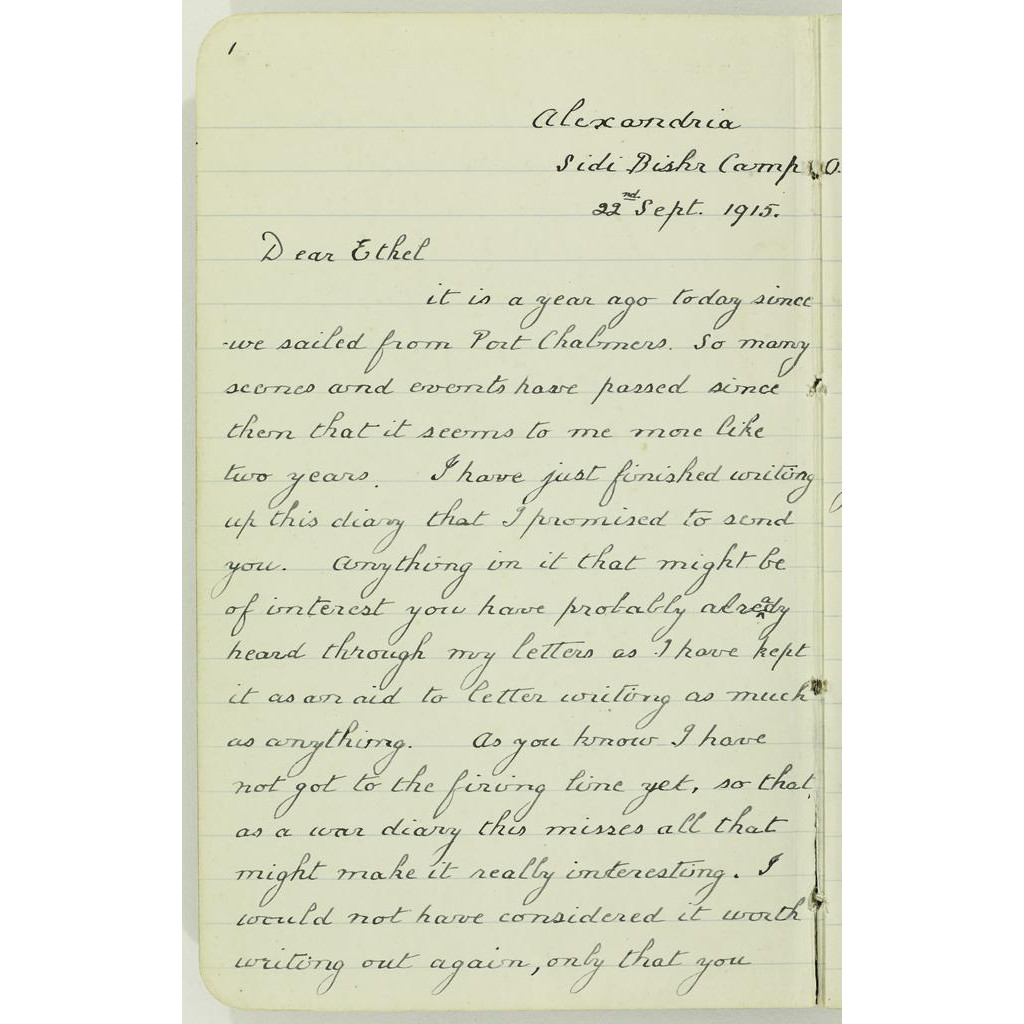 1
Alexandria
Sidi Bishr Camp O.
22nd Sept. 1915.
Dear Ethel
it is a year ago today since
we sailed from Port Chalmers. So many
scenes and events have passed since
then that it seems to me more like
two years. I have just finished writing
up this diary that I promised to send
you. Anything in it that might be
of interest you have probably already
heard through my letters as I have kept
it as an aid to letter writing as much
as anything. As you know I have
not got to the firing line yet, so that,
as a war diary this misses all that
might make it really interesting. I
would not have considered it worth
writing out again, only that you